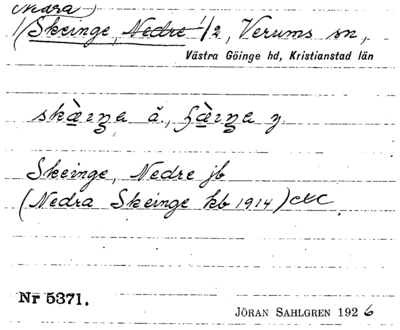 Nedra
1/ Skeinge, Nedre 1/2, Verums sn,
Västra Göinge hd, Kristianstad län
Skeinge, Nedre jb
(Nedra Skeinge kb 1914)
Nr 5371.
JÖRAN SAHLGREN 1926